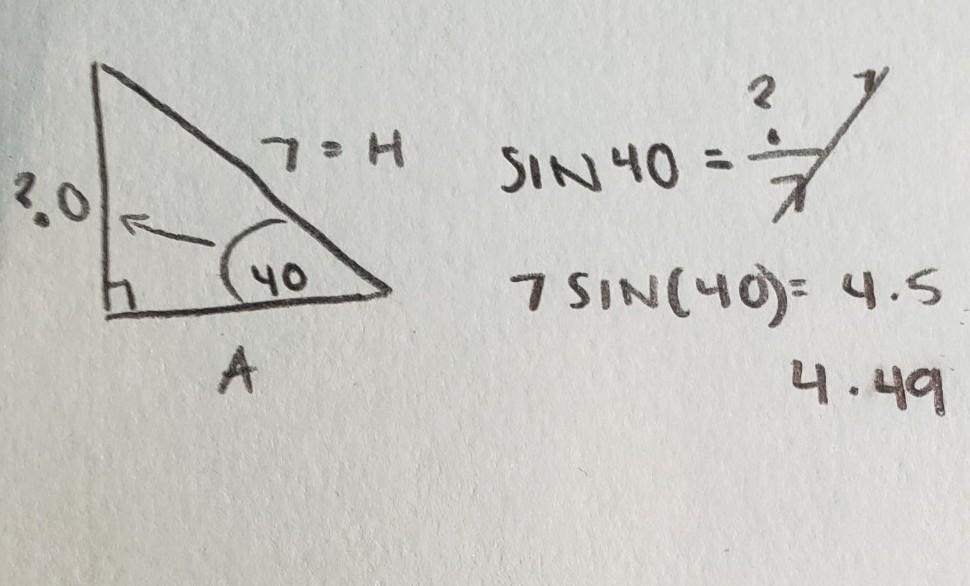 7 = H
?.O
40
A
SIN 40 = ?/7 7
7 SIN(40) = 4.5
4.49